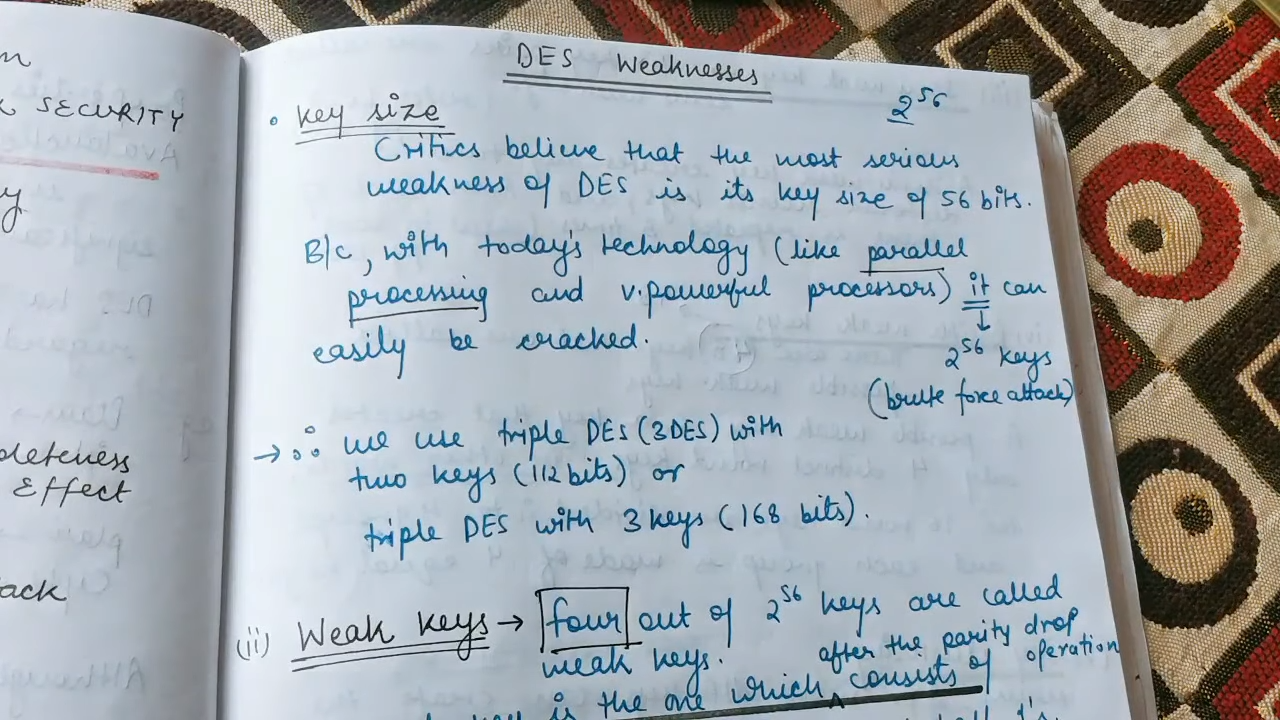 m
K SECURITY
y
pleteness
Effect
ack
DES Weaknesses
2^56
• Key size
Critics believe that the most serious
weakness of DES is its key size of 56 bits.
B/c, with today's technology (like parallel
processing and v.powerful processors) it can
easily be cracked.
↓
2^56 keys
(brute force attack)
→ ∴ we use triple DES (3DES) with
two keys (112 bits) or
triple DES with 3 keys (168 bits).
(ii) Weak keys → four out of 2^56 keys are called
weak keys.
after the parity drop
operation
key is the one which ^ consists of
all 1's.